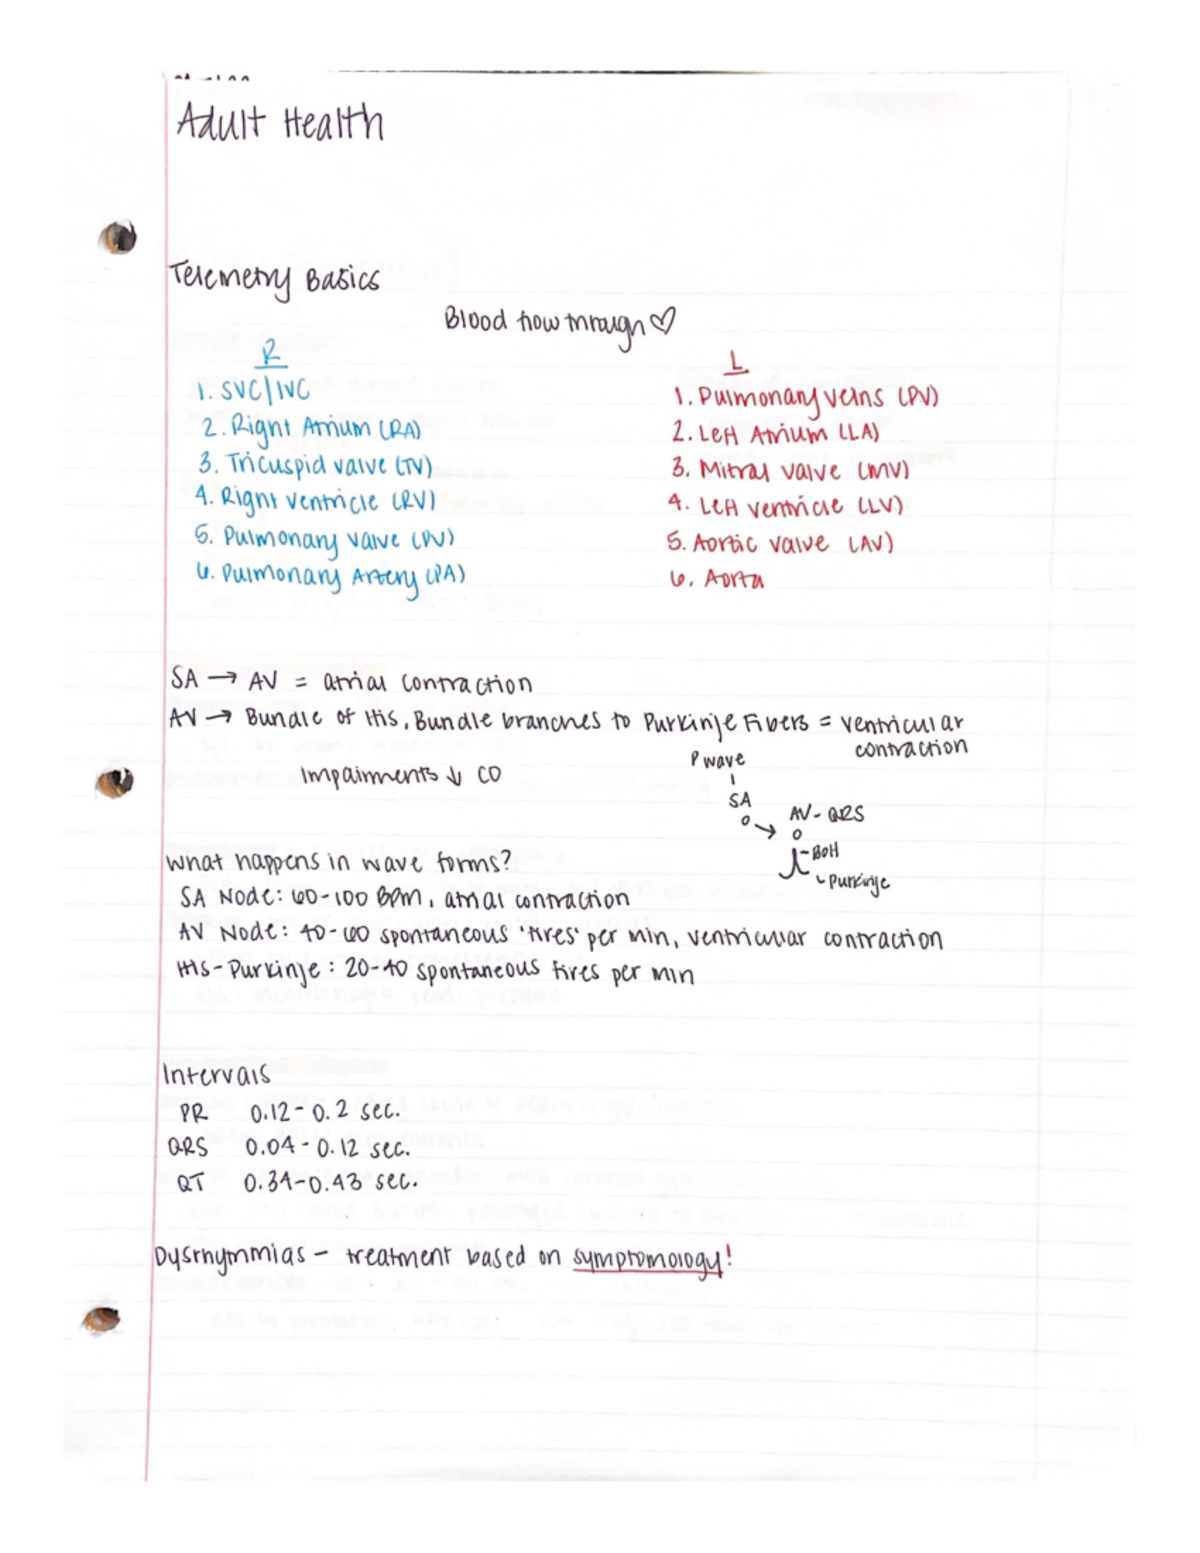 Adult Health
Telemetry Basics
Blood flow through ♡
R
1. SVC/IVC
2. Right Atrium (RA)
3. Tricuspid valve (TV)
4. Right ventricle (RV)
5. Pulmonary valve (PV)
6. Pulmonary Artery (PA)
L
1. Pulmonary veins (PV)
2. Left Atrium (LA)
3. Mitral valve (MV)
4. Left ventricle (LV)
5. Aortic valve (AV)
6. Aorta
SA → AV = atrial contraction
AV → Bundle of His, Bundle branches to Purkinje Fibers = ventricular
contraction
Impairments ↓ CO
P wave
SA
AV - QRS
BOH
Purkinje
What happens in wave forms?
SA Node: 60-100 BPM, atrial contraction
AV Node: 40-60 spontaneous 'fires' per min, ventricular contraction
His-Purkinje: 20-40 spontaneous fires per min
Intervals
PR 0.12-0.2 sec.
QRS 0.04-0.12 sec.
QT 0.34-0.43 sec.
Dysrhymmias - treatment based on symptomology!